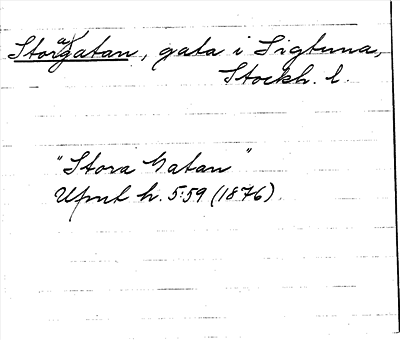 Stora gatan, gata i Sigtuna,
Stockh. l.
"Stora Gatan"
Ufmt h. 5:59 (1876).